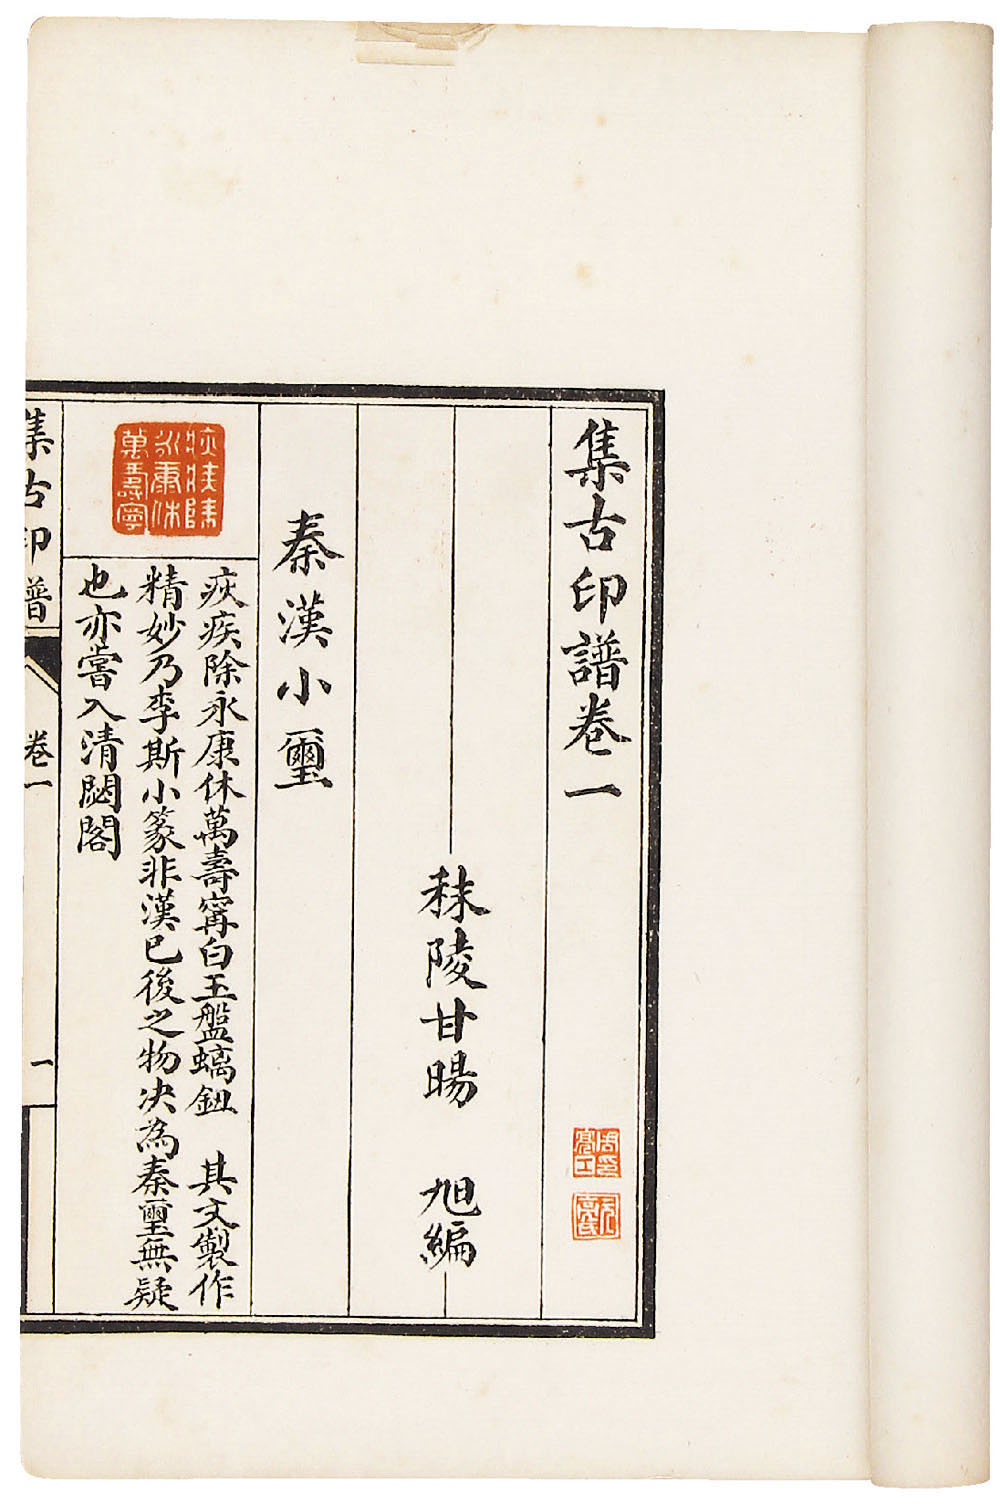 集古印譜卷一
秣陵甘暘 旭編
秦漢小璽
疢疾除永康休萬壽寧
疢疾除永康休萬壽甯白玉盤螭鈕 其文製作
精妙乃李斯小篆非漢已後之物决為秦璽無疑
也亦嘗入清閟閣
集古印譜 卷一 一